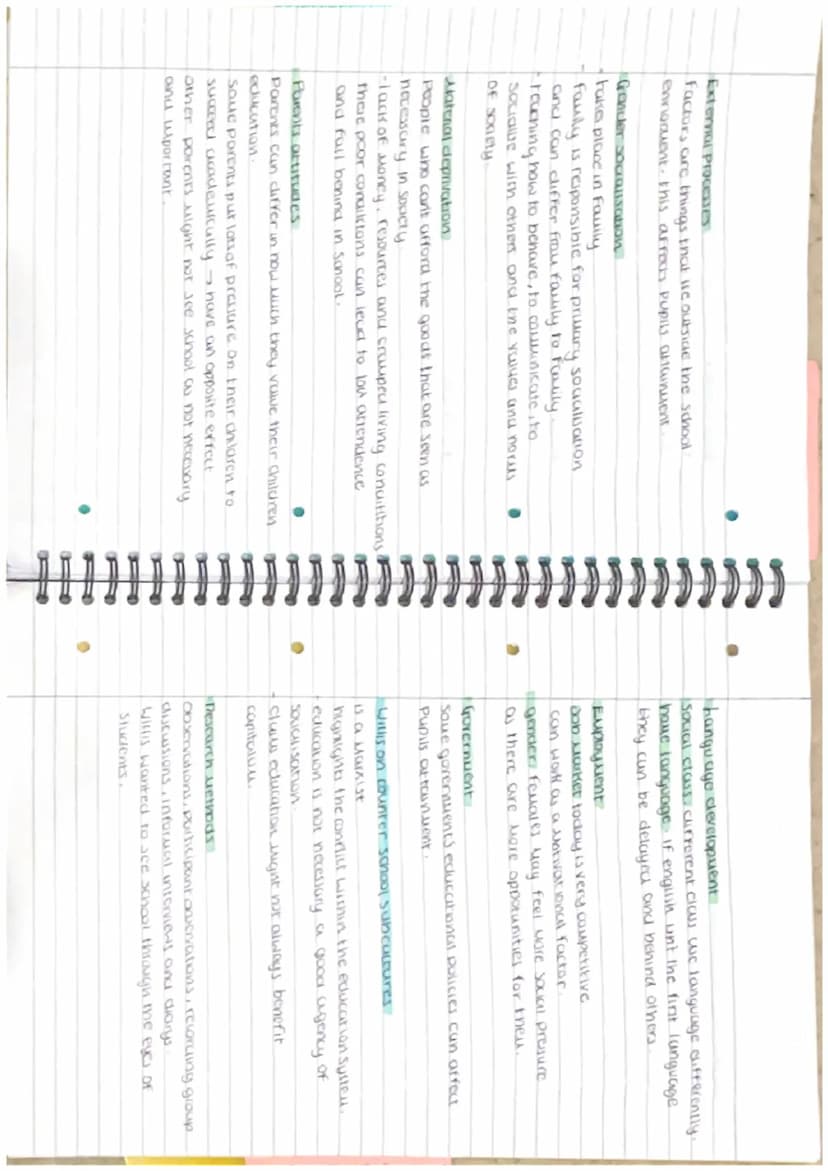 External Processes
Factors are things that lie outside the school
enviroment, this affects pupils attainment.
Gender socialisation
- takes place in family
- family is responsible for primary socialisation
and can differ from family to family.
- teaching how to behave, to communicate, to
socialise with others and the values and norms
of society.
Material deprivation
People who can't afford the goods that are seen as
necessary in society
- lack of money, resources and cramped living conditions
these poor conditions can lead to low attendence
and fall behind in school.
Parents attitudes
Parents can differ in how much they value their children
education.
Some parents put lots of pressure on their children to
succeed academically → have an opposite effect
other parents might not see school as not necessary
and important.
Language development
Social class: different class use language differently.
home language: if english isnt the first language
they can be delayed and behind others.
Employment
Job market today is very competitive
can work as a motivational factor.
gender: females may feel more social pressure
as there are more oppotunities for them.
Goverment
Some goverments educational policies can affect
pupils attainment.
Willis on counter school subcultures
is a Marxist
highlights the conflict within the education system.
- education is not necessary a good agency of
socialisation.
- claims education might not always benefit
capitalism.
Research methods
observations, participant observations, recording group
discussions, informal interviews and diarys.
Willis wanted to see school through the eyes of
students.